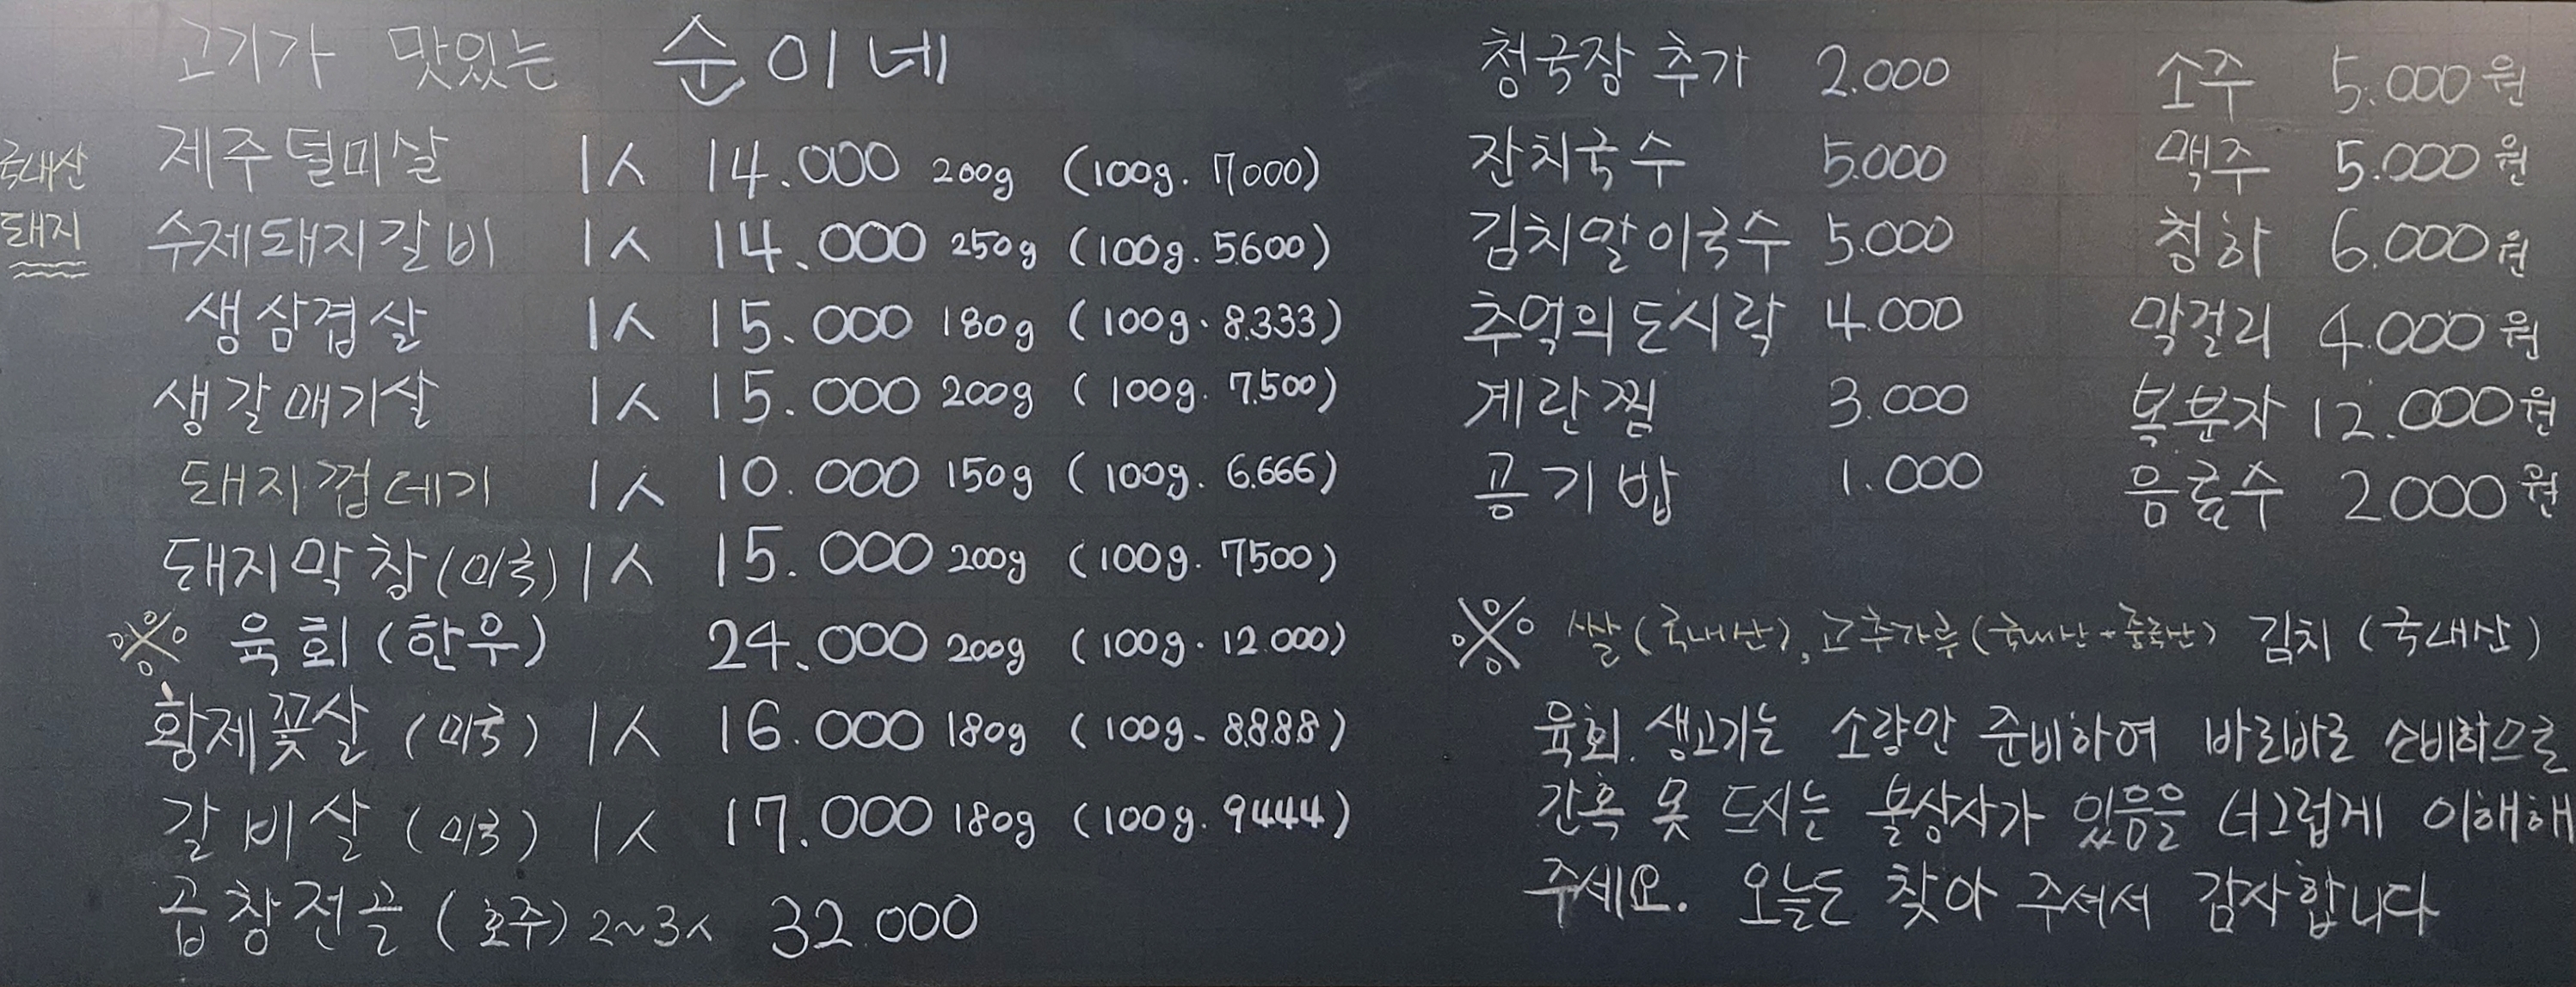 고기가 맛있는 순이네
국내산
돼지
제주덜미살 1人 14.000 200g (100g. 7000)
수제돼지갈비 1人 14.000 250g (100g. 5.600)
생삼겹살 1人 15.000 180g (100g. 8.333)
생갈매기살 1人 15.000 200g (100g. 7.500)
돼지껍데기 1人 10.000 150g (100g. 6.666)
돼지막창(미국) 1人 15.000 200g (100g. 7500)
※ 육회(한우) 24.000 200g (100g. 12.000)
황제꽃살 (미국) 1人 16.000 180g (100g. 8.888)
갈비살 (미국) 1人 17.000 180g (100g. 9444)
곱창전골 (호주) 2~3人 32.000
청국장 추가 2.000
잔치국수 5.000
김치말이국수 5.000
추억의도시락 4.000
계란찜 3.000
공기밥 1.000
소주 5.000원
맥주 5.000원
청하 6.000원
막걸리 4.000원
복분자 12.000원
음료수 2000원
※ 쌀(국내산), 고추가루(국내산+중국산) 김치 (국내산)
육회. 생고기는 소량만 준비하여 바로바로 소비하므로
간혹 못 드시는 불상사가 있음을 너그럽게 이해해
주세요. 오늘도 찾아 주셔서 감사합니다